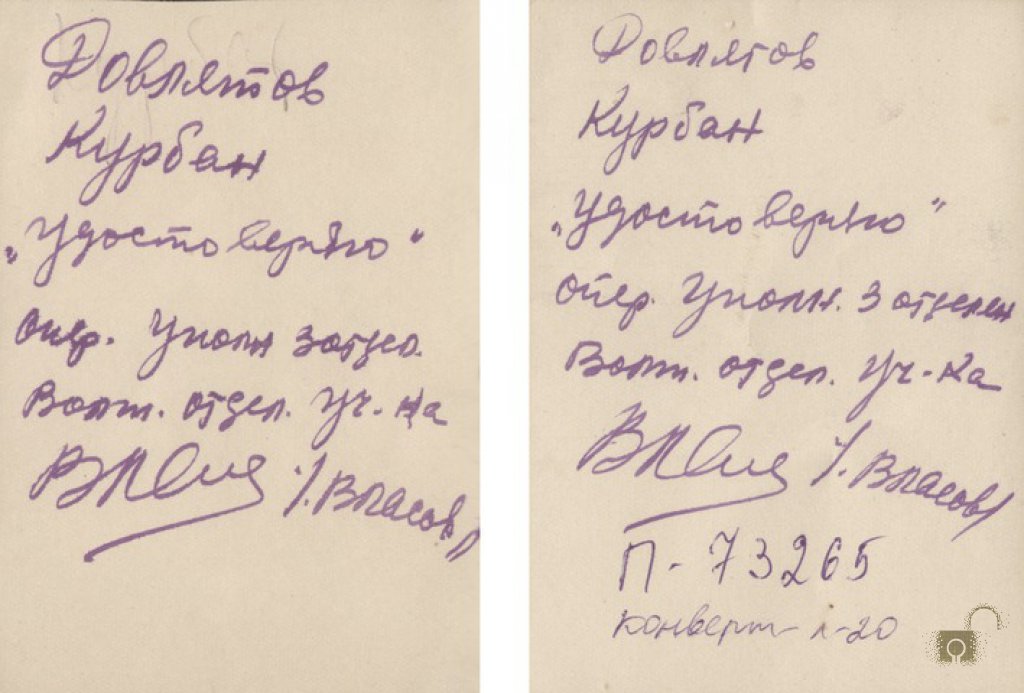 Довлятов
Курбан
„Удостоверяю"
Опер. Уполн 3 отдел.
Волж. отдел. Уч-ка
/. Власов/
Довлятов
Курбан
„Удостоверяю"
Опер. Уполн. 3 отделен
Волж. отдел. Уч-ка
/. Власов/
П-73265
конверт-1-20